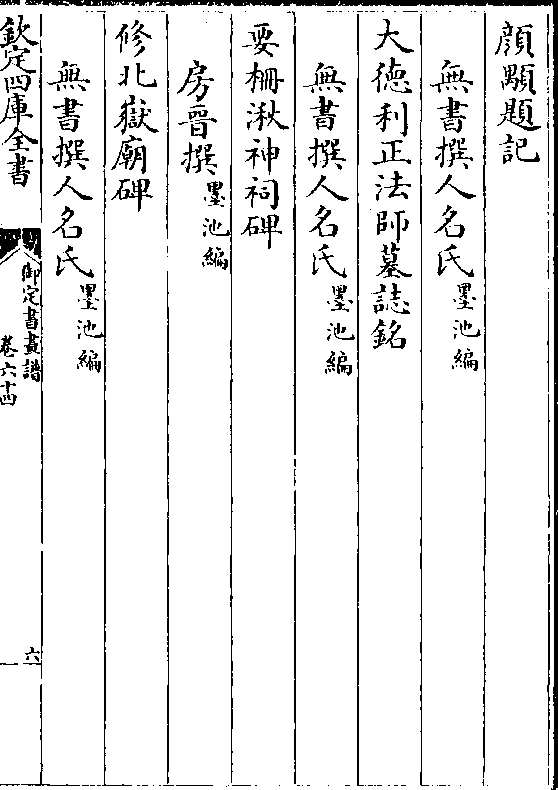 顔顒題記
無書撰人名氏墨池編
大德利正法師墓誌銘
無書撰人名氏墨池編
要柵湫神祠碑
房晉撰墨池編
修北嶽廟碑
無書撰人名氏墨池編
欽定四庫全書
御定書畫譜
卷六十四
六